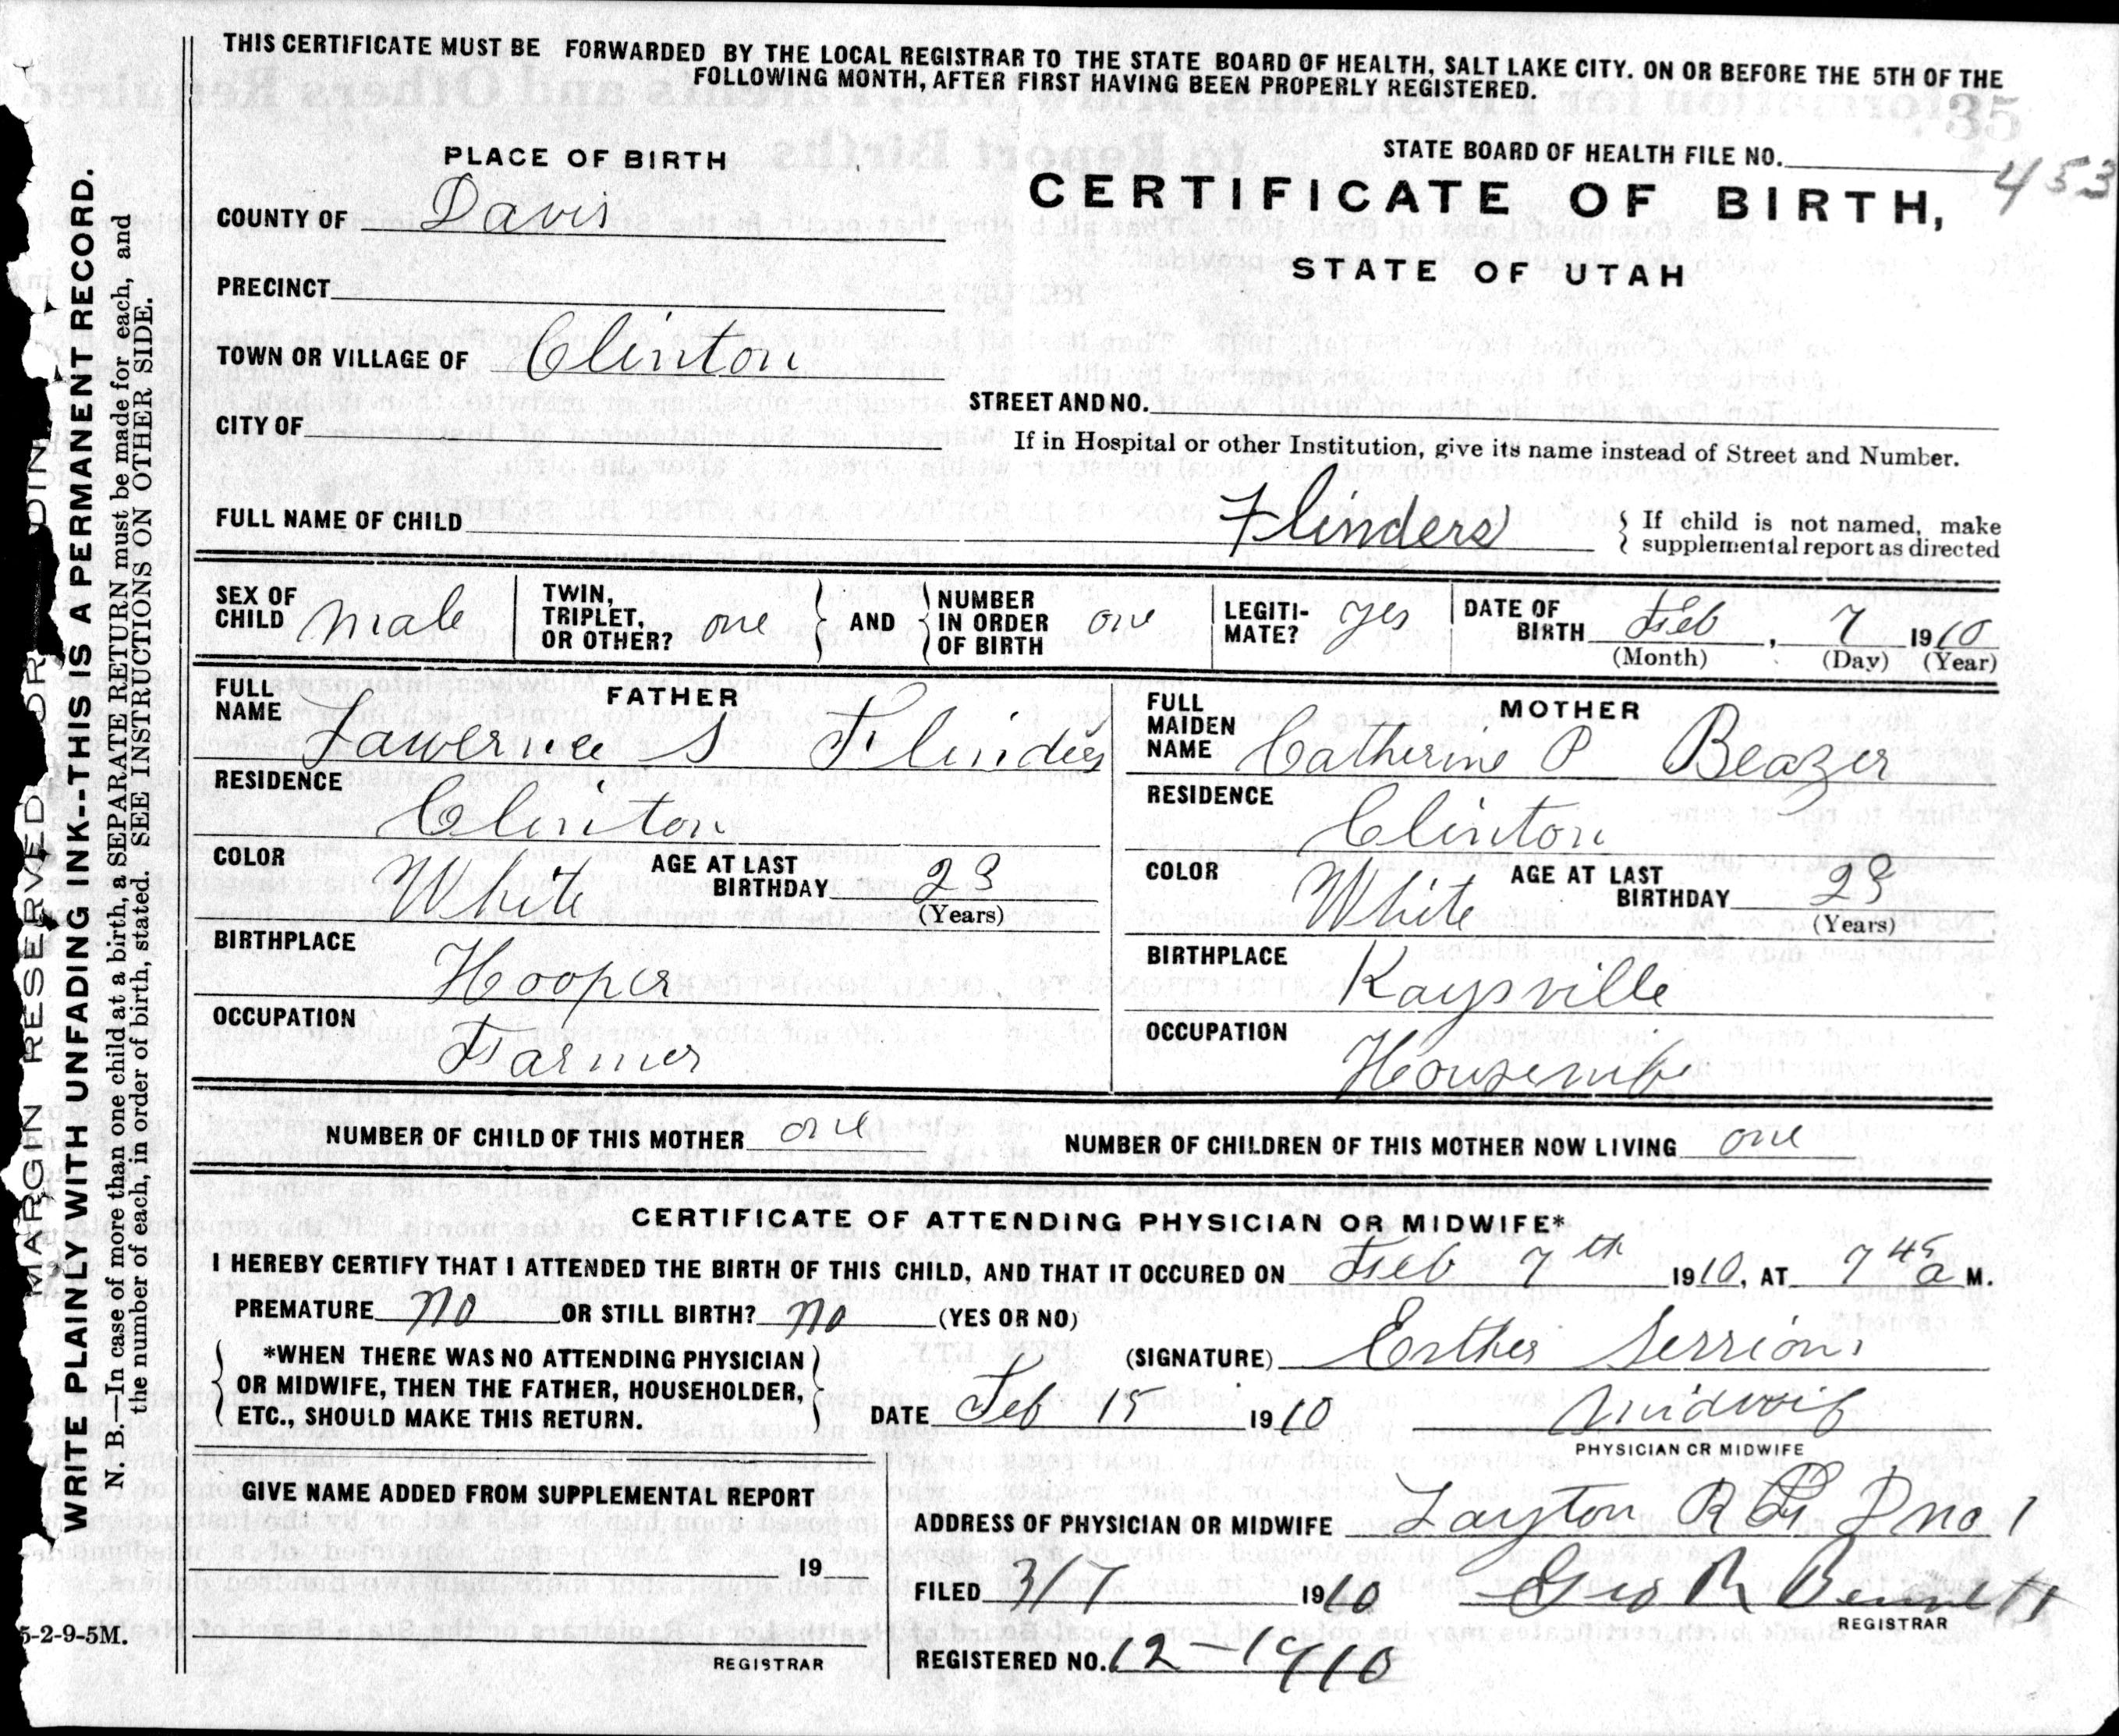 THIS CERTIFICATE MUST BE FORWARDED BY THE LOCAL REGISTRAR TO THE STATE BOARD OF HEALTH, SALT LAKE CITY. ON OR BEFORE THE 5TH OF THE
FOLLOWING MONTH, AFTER FIRST HAVING BEEN PROPERLY REGISTERED.
35
PLACE OF BIRTH
STATE BOARD OF HEALTH FILE NO. 453
CERTIFICATE OF BIRTH,
STATE OF UTAH
COUNTY OF Davis
PRECINCT
TOWN OR VILLAGE OF Clinton
CITY OF
STREET AND NO.
If in Hospital or other Institution, give its name instead of Street and Number.
FULL NAME OF CHILD Flinders { If child is not named, make
supplemental report as directed
SEX OF CHILD male
TWIN, TRIPLET, OR OTHER? one } AND { NUMBER IN ORDER OF BIRTH one
LEGITI-MATE? yes
DATE OF BIRTH Feb, 7 1910
(Month) (Day) (Year)
FATHER
FULL NAME Lawernce S Flinders
RESIDENCE Clinton
COLOR White AGE AT LAST BIRTHDAY 23
(Years)
BIRTHPLACE Hooper
OCCUPATION Farmer
MOTHER
FULL MAIDEN NAME Catherine P Beazer
RESIDENCE Clinton
COLOR White AGE AT LAST BIRTHDAY 23
(Years)
BIRTHPLACE Kaysville
OCCUPATION Housewife
NUMBER OF CHILD OF THIS MOTHER one NUMBER OF CHILDREN OF THIS MOTHER NOW LIVING one
CERTIFICATE OF ATTENDING PHYSICIAN OR MIDWIFE*
I HEREBY CERTIFY THAT I ATTENDED THE BIRTH OF THIS CHILD, AND THAT IT OCCURED ON Feb 7th 1910, AT 7 45 a M.
PREMATURE no OR STILL BIRTH? no (YES OR NO)
{ *WHEN THERE WAS NO ATTENDING PHYSICIAN
OR MIDWIFE, THEN THE FATHER, HOUSEHOLDER,
ETC., SHOULD MAKE THIS RETURN. }
(SIGNATURE) Esther Serrion
DATE Feb 15 1910 midwif
PHYSICIAN OR MIDWIFE
GIVE NAME ADDED FROM SUPPLEMENTAL REPORT
19
REGISTRAR
ADDRESS OF PHYSICIAN OR MIDWIFE Layton R F D no 1
FILED 3/7 1910 Geo R Bennett
REGISTRAR
REGISTERED NO. 12-1910
5-2-9-5M.
MARGIN RESERVED FOR
WRITE PLAINLY WITH UNFADING INK--THIS IS A PERMANENT RECORD.
N. B.—In case of more than one child at a birth, a SEPARATE RETURN must be made for each, and
the number of each, in order of birth, stated. SEE INSTRUCTIONS ON OTHER SIDE.